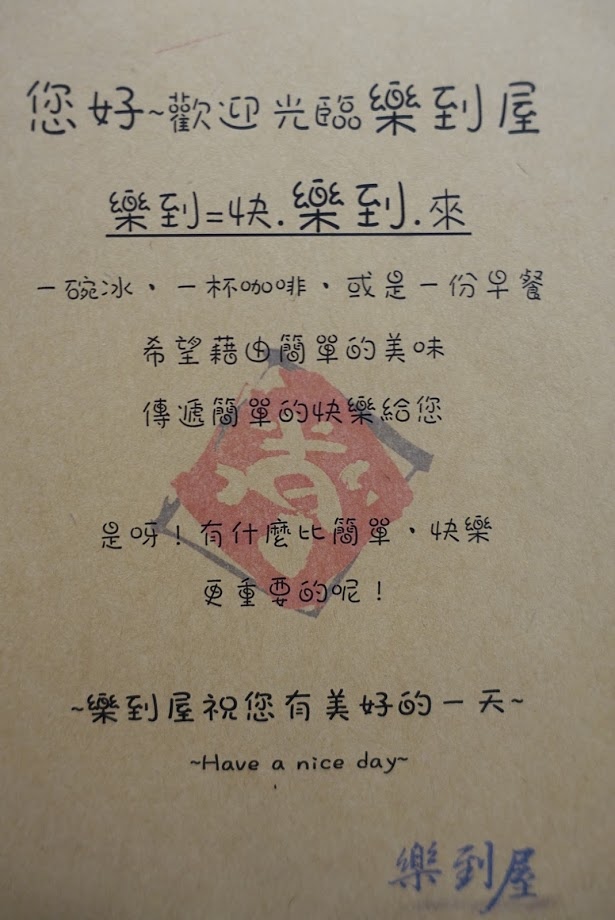 您好~歡迎光臨樂到屋
樂到=快.樂到.來
一碗冰，一杯咖啡，或是一份早餐
希望藉由簡單的美味
傳遞簡單的快樂給您
是呀！有什麼比簡單，快樂
更重要的呢！
~樂到屋祝您有美好的一天~
~Have a nice day~
樂到屋